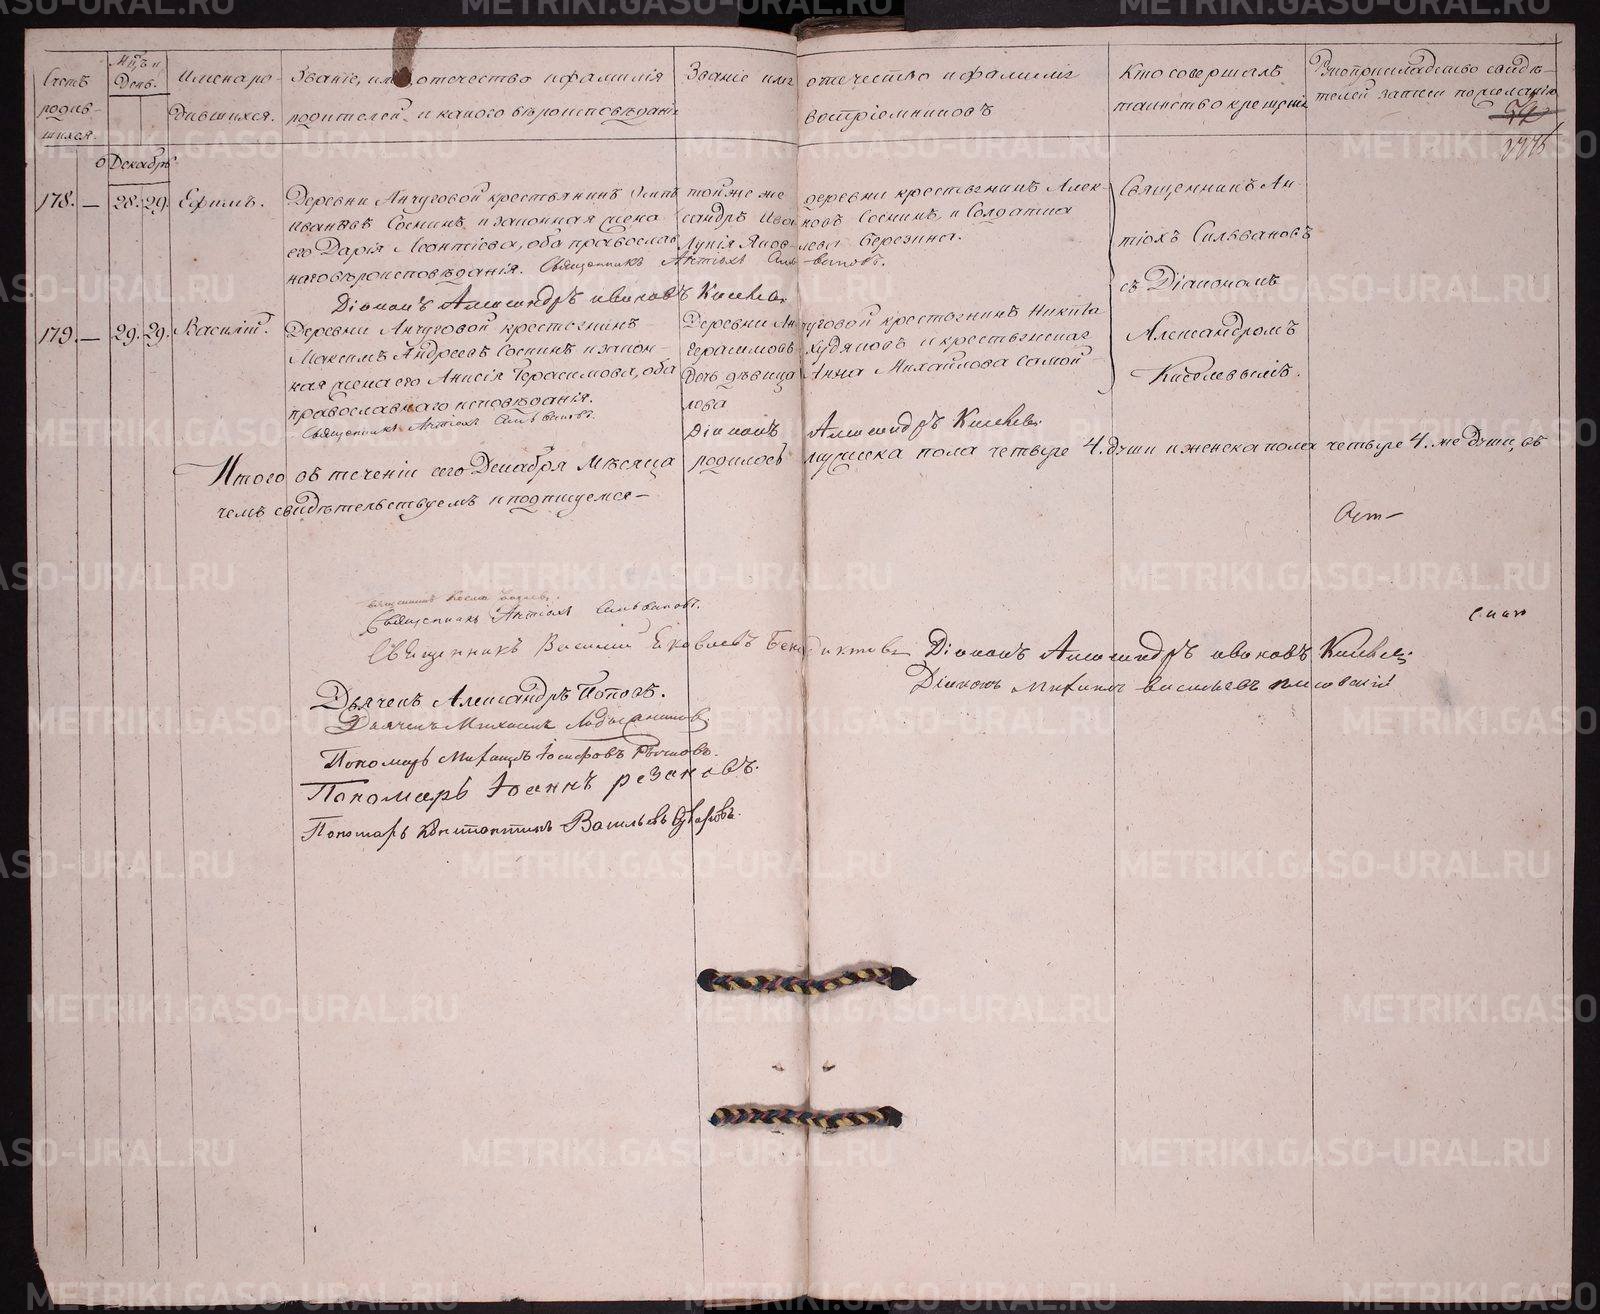 Счетъ родив-шихся.
Мцъ и День.
Имена ро-дившихся.
Званіе, имя, отечество и фамилія
родителей, и какого вѣроисповѣданія
Званіе имя отечество и фамилія
воспріемниковъ
Кто совершалъ
таинство крещенія
Рукоприкладство свидѣ-
телей записи по желанію
Декабрь
178. — 28. 29. Ефимъ.
Деревни Анчуговой крестьянинъ
Ивановъ Соснинъ и законная жена
его Дарія Леонтіева, оба православ
наго вѣроисповѣданія.
Той же деревни крестьянинъ Алек-
сандръ Ивановъ Соснинъ, и Солдатка
Лукія Яковлева Березина.
Священникъ Антіохъ Сильвановъ.
Діаконъ Александръ Ивановъ Киселевъ
Священникъ Ан-
тіохъ Сильвановъ
съ Діакономъ
Александромъ
Киселевымъ.
179. — 29. 29. Василій.
Деревни Анчуговой крестьянинъ
Максимъ Андреевъ Соснинъ и закон-
ная жена его Анисія Герасимова, оба
православнаго исповѣданія.
Священникъ Антіохъ Сильвановъ.
Деревни Анчуговой крестьянинъ Никита
Герасимовъ Худяковъ и крестьянская
Дочь дѣвица Анна Михайлова Самой
лова
Діаконъ Александръ Киселевъ
Итого въ теченіи сего Декабря Мѣсяца родилось мужеска пола четыре 4. души и женска пола четыре 4. же души, въ
чемъ свидѣтельствуемъ и подпишуемся —
Священникъ Антіохъ Сильвановъ.
Священникъ Василій Яковлевъ Бенедиктовъ
Діаконъ Александръ Ивановъ Киселевъ
Діаконъ Михаилъ Васильевъ
Дьячекъ Александръ Поповъ.
Дьячекъ Михаилъ
Пономарь Михаилъ Іосифовъ
Пономарь Іоаннъ Резановъ.
Пономарь Константинъ Васильевъ
METRIKI.GASO-URAL.RU